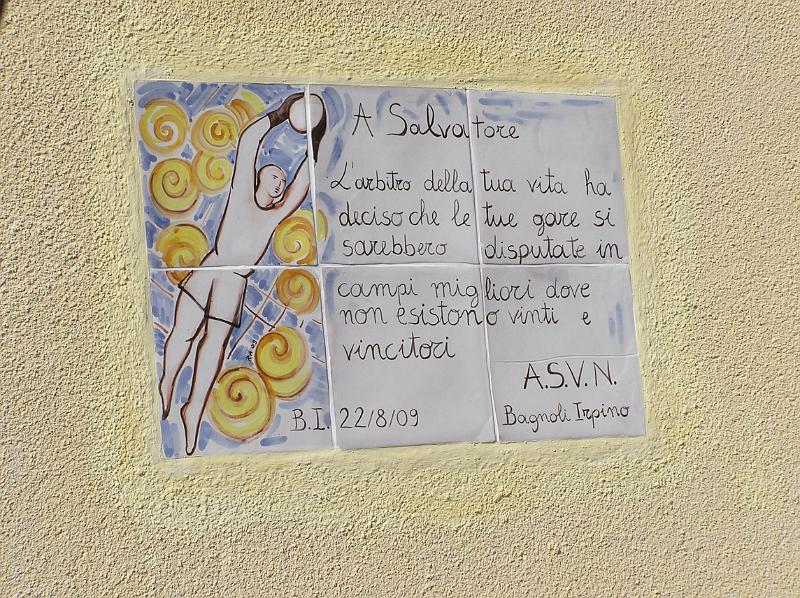 A Salvatore
L'arbitro della tua vita ha
deciso che le tue gare si
sarebbero disputate in
campi migliori dove
non esistono vinti e
vincitori
A.S.V.N.
B.I. 22/8/09
Bagnoli Irpino